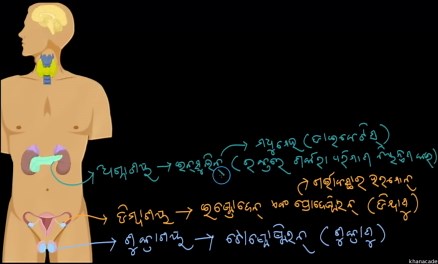 ମଧୁମେହ (ଡାଇବେଟିସ୍)
ଅଗ୍ନାଶୟ → ଇନସୁଲିନ୍ (ରକ୍ତରେ ଶର୍କରା ପରିମାଣ ନିୟନ୍ତ୍ରଣ କରେ)
ଗର୍ଭାବସ୍ଥାର ହରମୋନ୍
ଡିମ୍ବାଶୟ → ଇଷ୍ଟ୍ରୋଜେନ୍ ଏବଂ ପ୍ରୋଜେଷ୍ଟ୍ରୋନ୍ (ଡିମ୍ବାଣୁ)
ଶୁକ୍ରାଶୟ → ଟେଷ୍ଟୋଷ୍ଟେରନ୍ (ଶୁକ୍ରାଣୁ)
khanacade